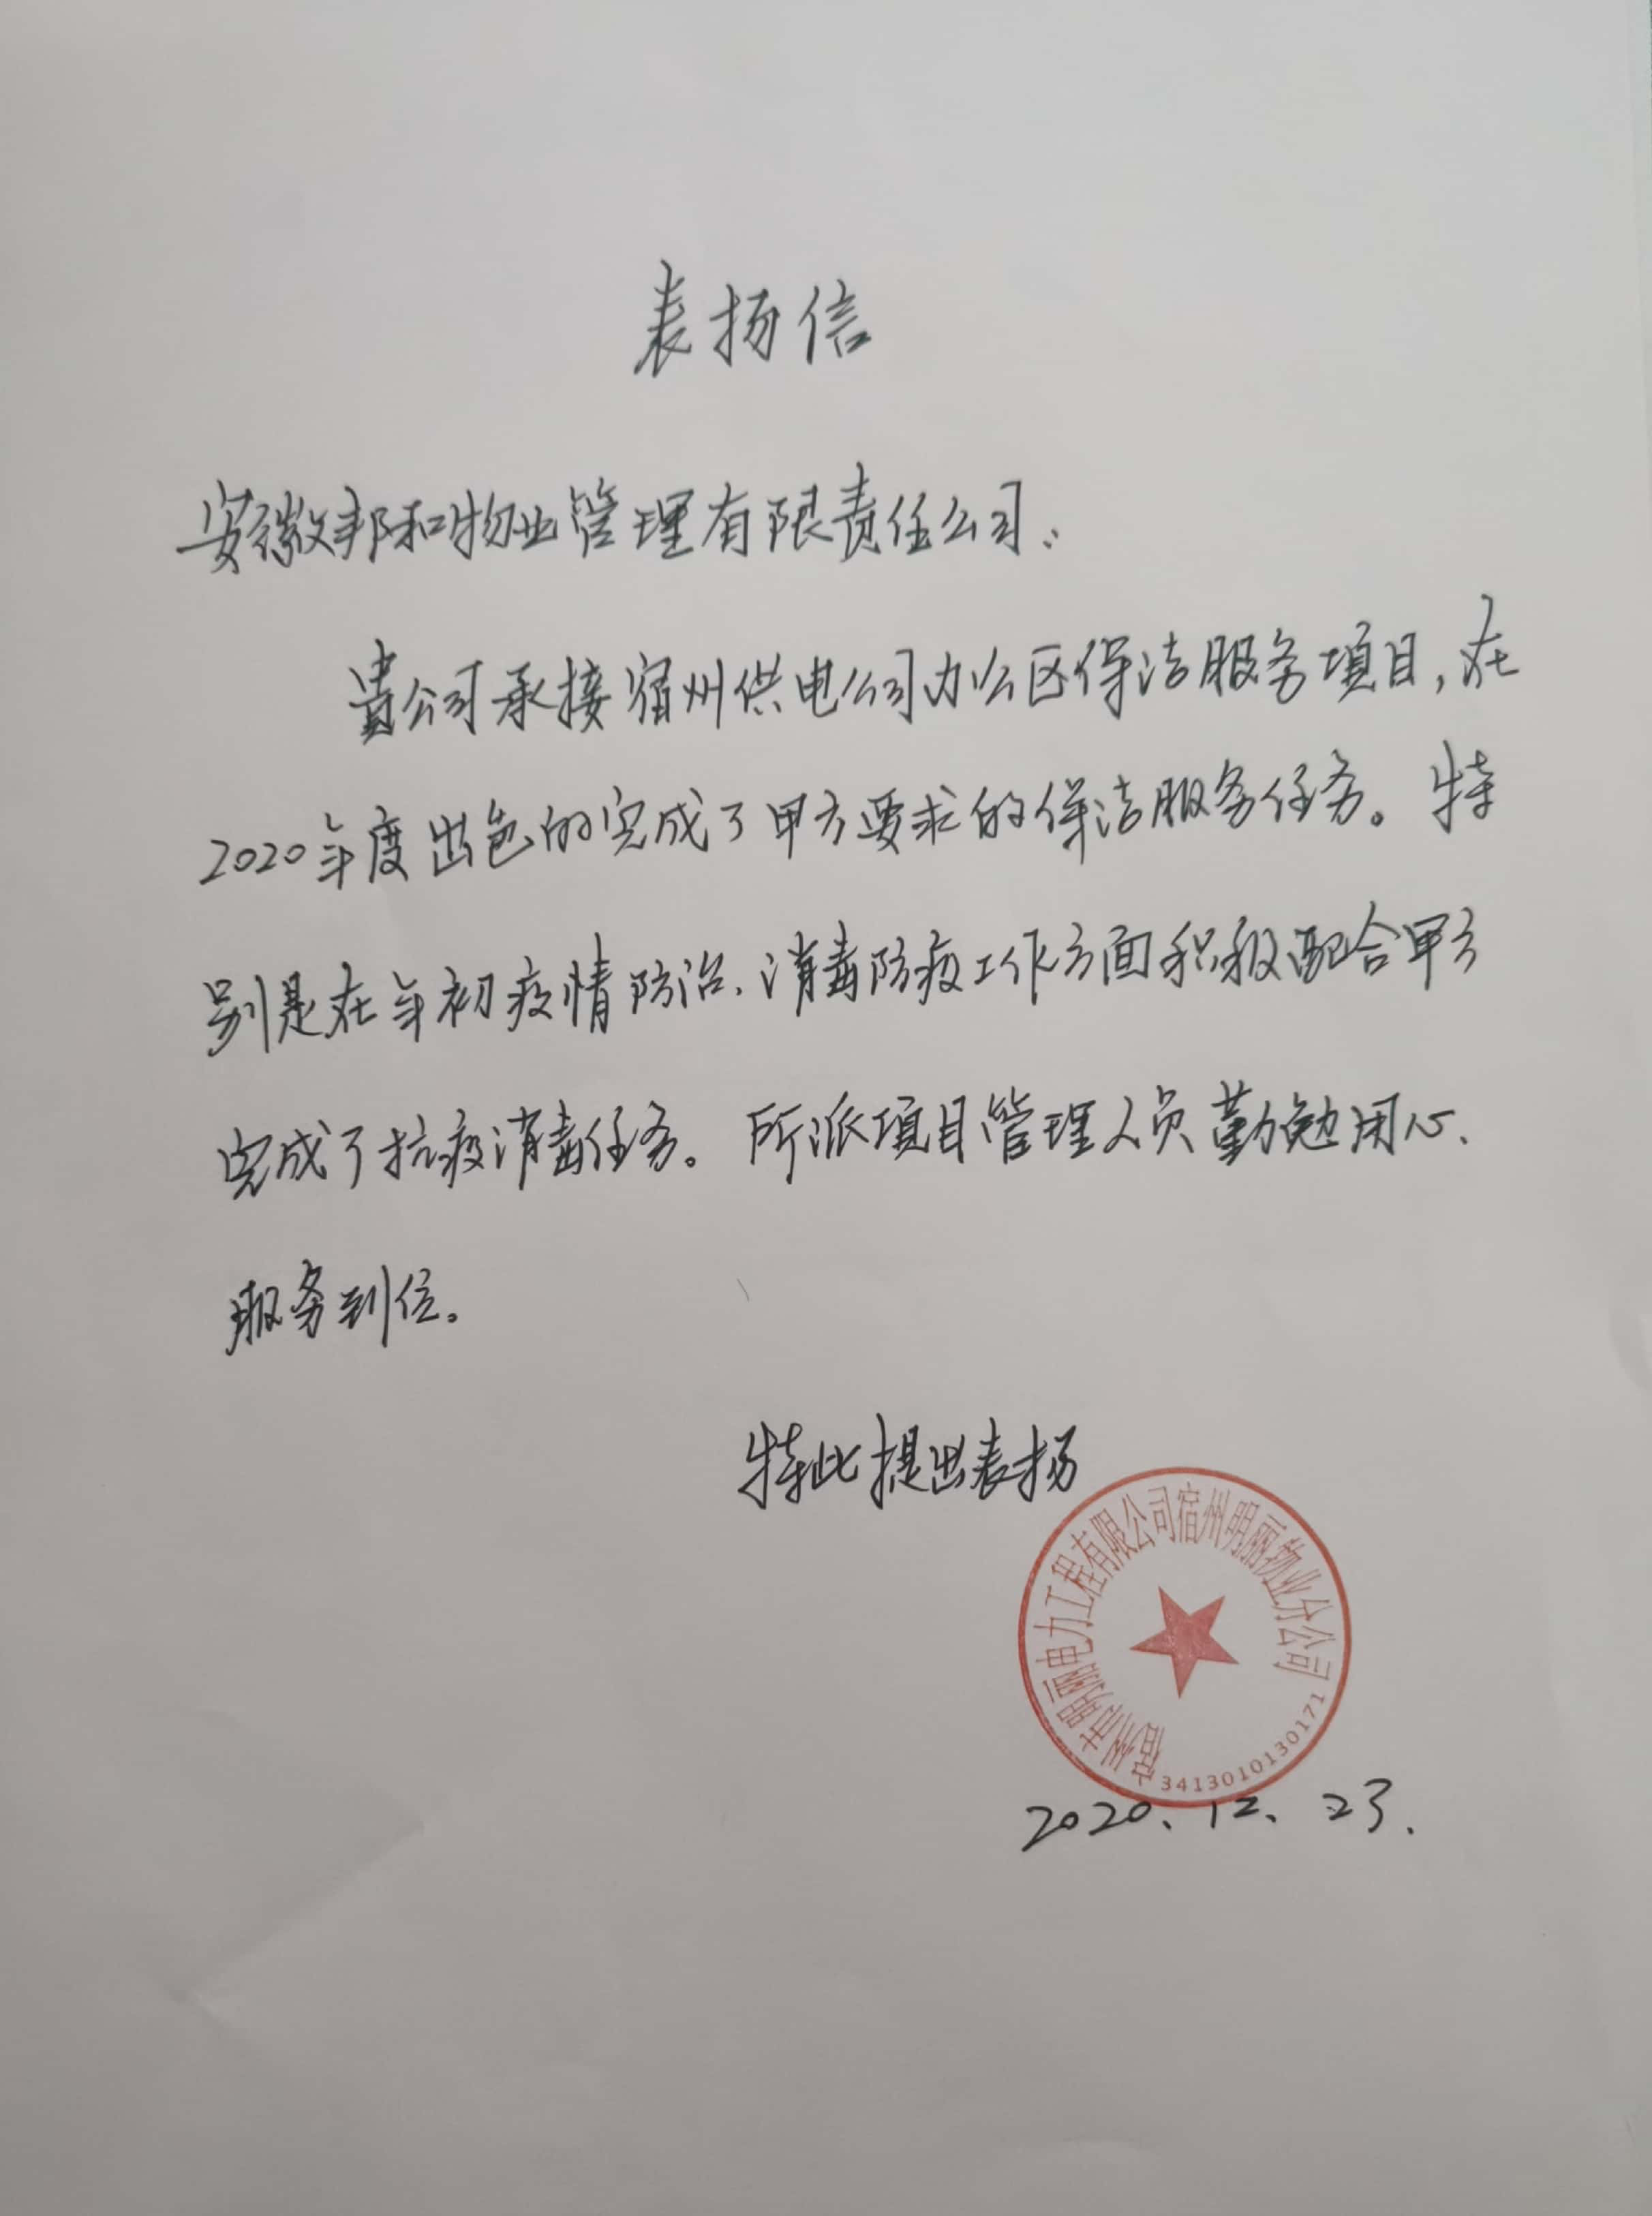 表扬信
安徽邦和物业管理有限责任公司：
贵公司承接宿州供电公司办公区保洁服务项目，在
2020年度出色的完成了甲方要求的保洁服务任务。特
别是在年初疫情防治、消毒防疫工作方面积极配合甲方
完成了抗疫消毒任务。所派项目管理人员勤勉用心、
服务到位。
特此提出表扬
宿州市明丽电力工程有限公司宿州明丽物业分公司
3413010130171
2020、12、23、